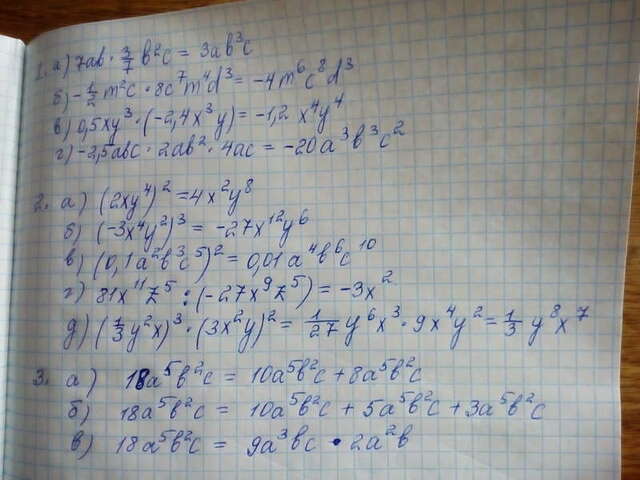 1. а) 7ab · 3/7 b²c = 3ab³c
б) -1/2 m²c · 8c⁷m⁴d³ = -4m⁶c⁸d³
в) 0,5xy³ · (-2,4x³y) = -1,2 x⁴y⁴
г) -2,5abc · 2ab² · 4ac = -20a³b³c²
2. а) (2xy⁴)² = 4x²y⁸
б) (-3x⁴y²)³ = -27x¹²y⁶
в) (0,1a²b³c⁵)² = 0,01a⁴b⁶c¹⁰
г) 81x¹¹z⁵ : (-27x⁹z⁵) = -3x²
д) (1/3 y²x)³ · (3x²y)² = 1/27 y⁶x³ · 9x⁴y² = 1/3 y⁸x⁷
3. а) 18a⁵b²c = 10a⁵b²c + 8a⁵b²c
б) 18a⁵b²c = 10a⁵b²c + 5a⁵b²c + 3a⁵b²c
в) 18a⁵b²c = 9a³bc · 2a²b